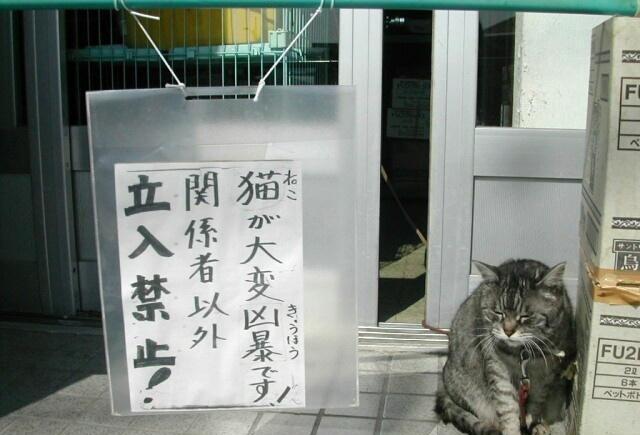 猫が大変凶暴です!
ねこ
きょうぼう
関係者以外
立入禁止!
FU
ペット
サント
烏
FU2
2ℓ
6本
ペットボト